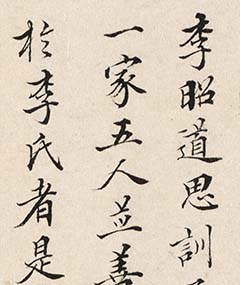 李昭道思訓
一家五人並善
於李氏者是